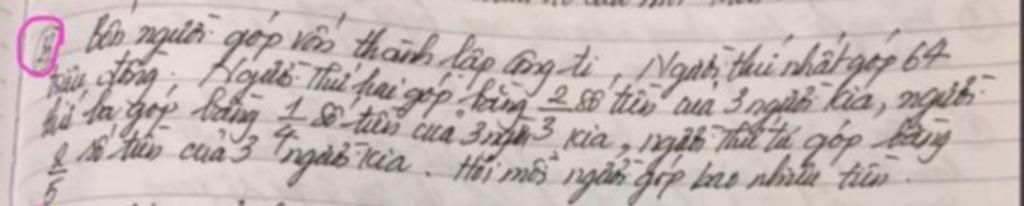 Bốn người góp vốn thành lập công ti, Người thứ nhất góp 64
triệu đồng. Người thứ hai góp bằng 2/3 số tiền của 3 người kia, người
thứ ba góp bằng 1/4 số tiền của 3 người kia, người thứ tư góp bằng
2/5 số tiền của 3 người kia. Hỏi mỗi người góp bao nhiêu tiền.